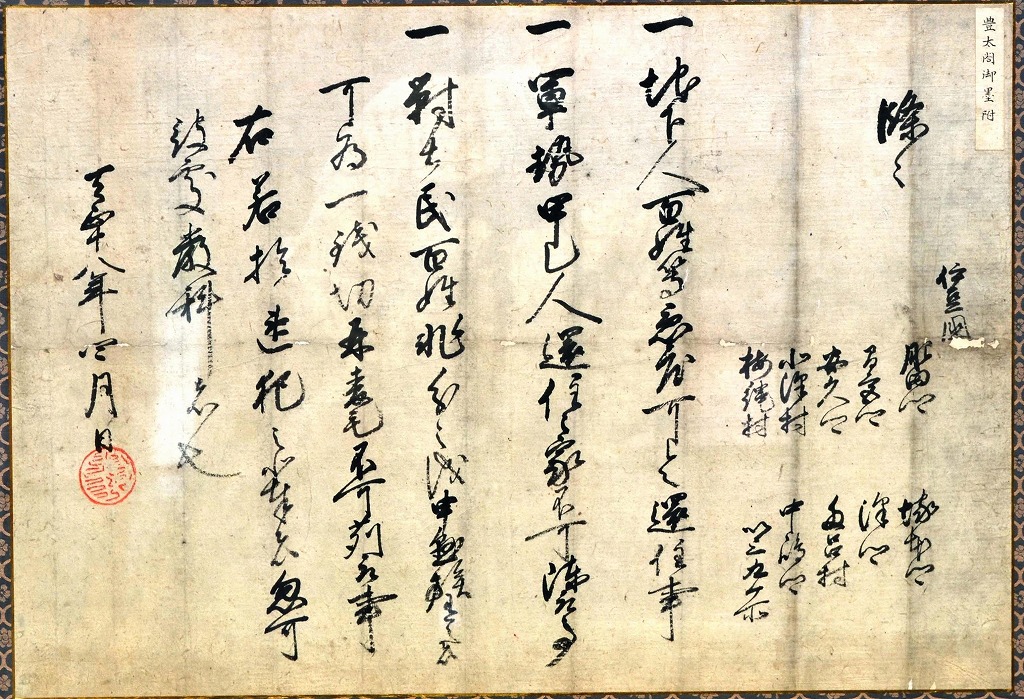 豊太閤御墨附
伊豆国
肥田郷 塚本郷
條々
間宮郷 澤郷
安久郷 多呂村
小澤村 中嶋郷
梅縄村 以上九ケ所
一 地下人百姓等急度可令還住事
一 軍勢甲乙人還住之家不可陣取事
一 對土民百姓非分之儀申懸族有之者
可為一銭切并麦毛不可苅取事
右若於違犯之輩者忽可
被處嚴科者也
天正十八年四月日